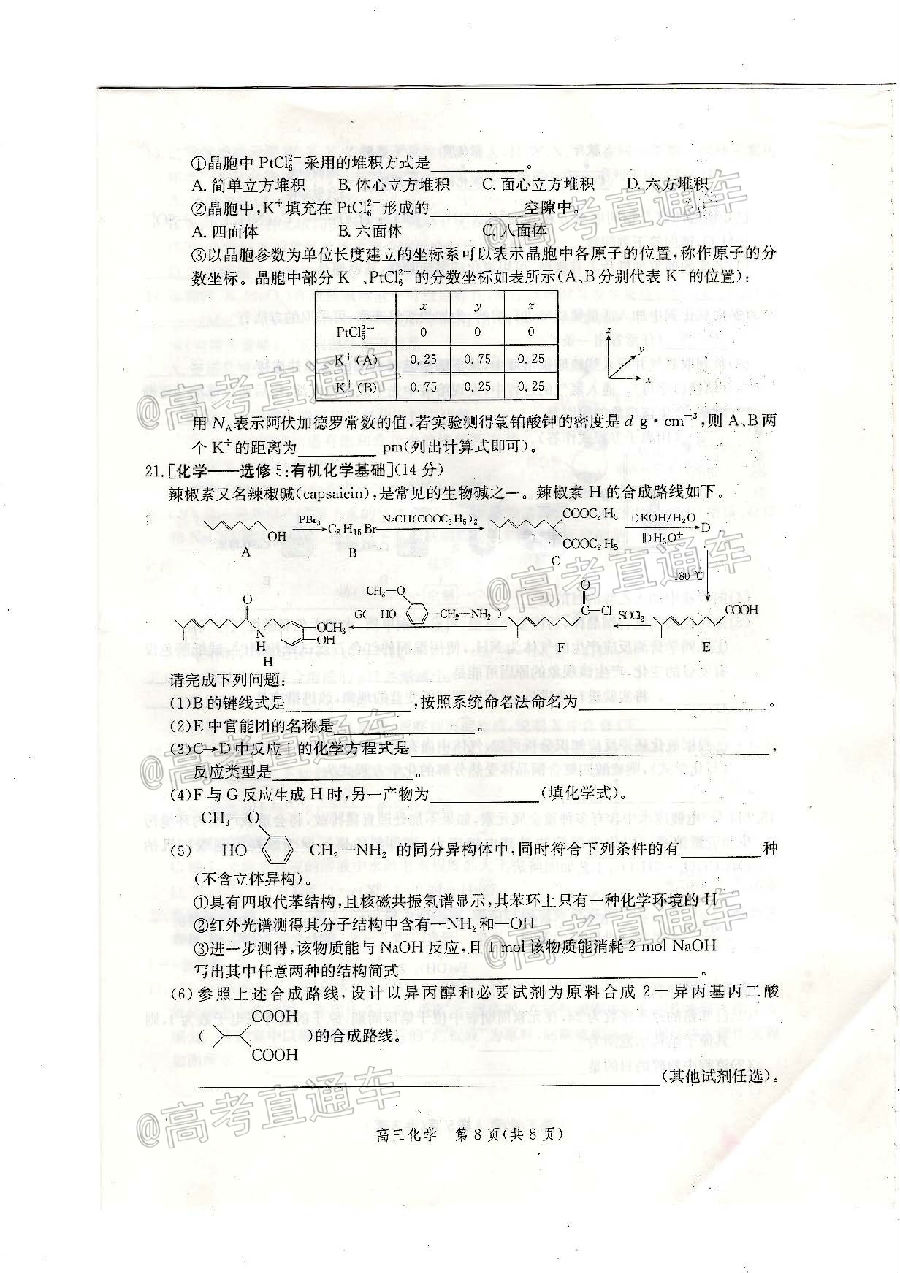 ①晶胞中 PtCl₆²⁻采用的堆积方式是__________。
A. 简单立方堆积 B. 体心立方堆积 C. 面心立方堆积 D. 六方堆积
②晶胞中,K⁺填充在 PtCl₆²⁻形成的__________空隙中。
A. 四面体 B. 六面体 C. 八面体
③以晶胞参数为单位长度建立的坐标系可以表示晶胞中各原子的位置,称作原子的分
数坐标。晶胞中部分 K⁺、PtCl₆²⁻的分数坐标如表所示(A、B分别代表 K⁺的位置):
x y z
PtCl₆²⁻ 0 0 0
K⁺(A) 0.25 0.75 0.25
K⁺(B) 0.75 0.25 0.25
z y x
用 N_A表示阿伏加德罗常数的值,若实验测得氯铂酸钾的密度是 d g·cm⁻³,则 A、B两
个 K⁺的距离为__________pm(列出计算式即可)。
21.[化学——选修5:有机化学基础](14分)
辣椒素又名辣椒碱(capsaicin),是常见的生物碱之一。辣椒素 H 的合成路线如下。
OH A PBr₃ C₈H₁₅Br B NaCH(COOC₂H₅)₂ COOC₂H₅ COOC₂H₅ C ⅠKOH/H₂O ⅡH₃O⁺ D
180℃
O N H OCH₃ OH H G( CH₃—O HO CH₂—NH₂ ) O C—Cl F SOCl₂ COOH E
请完成下列问题:
(1)B的键线式是__________,按照系统命名法命名为__________。
(2)E中官能团的名称是__________。
(3)C→D中反应Ⅰ的化学方程式是__________,
反应类型是__________。
(4)F与G反应生成H时,另一产物为__________(填化学式)。
(5) CH₃ O HO CH₂—NH₂ 的同分异构体中,同时符合下列条件的有__________种
(不含立体异构)。
①具有四取代苯结构,且核磁共振氢谱显示,其苯环上只有一种化学环境的 H
②红外光谱测得其分子结构中含有—NH₂和—OH
③进一步测得,该物质能与 NaOH 反应,且1 mol该物质能消耗2 mol NaOH
写出其中任意两种的结构简式__________。
(6)参照上述合成路线,设计以异丙醇和必要试剂为原料合成2-异丙基丙二酸
( COOH COOH )的合成路线。
__________(其他试剂任选)。
高三化学 第8页(共8页)
@高考直通车
@高考直通车
@高考直通车
@高考直通车
@高考直通车
@高考直通车